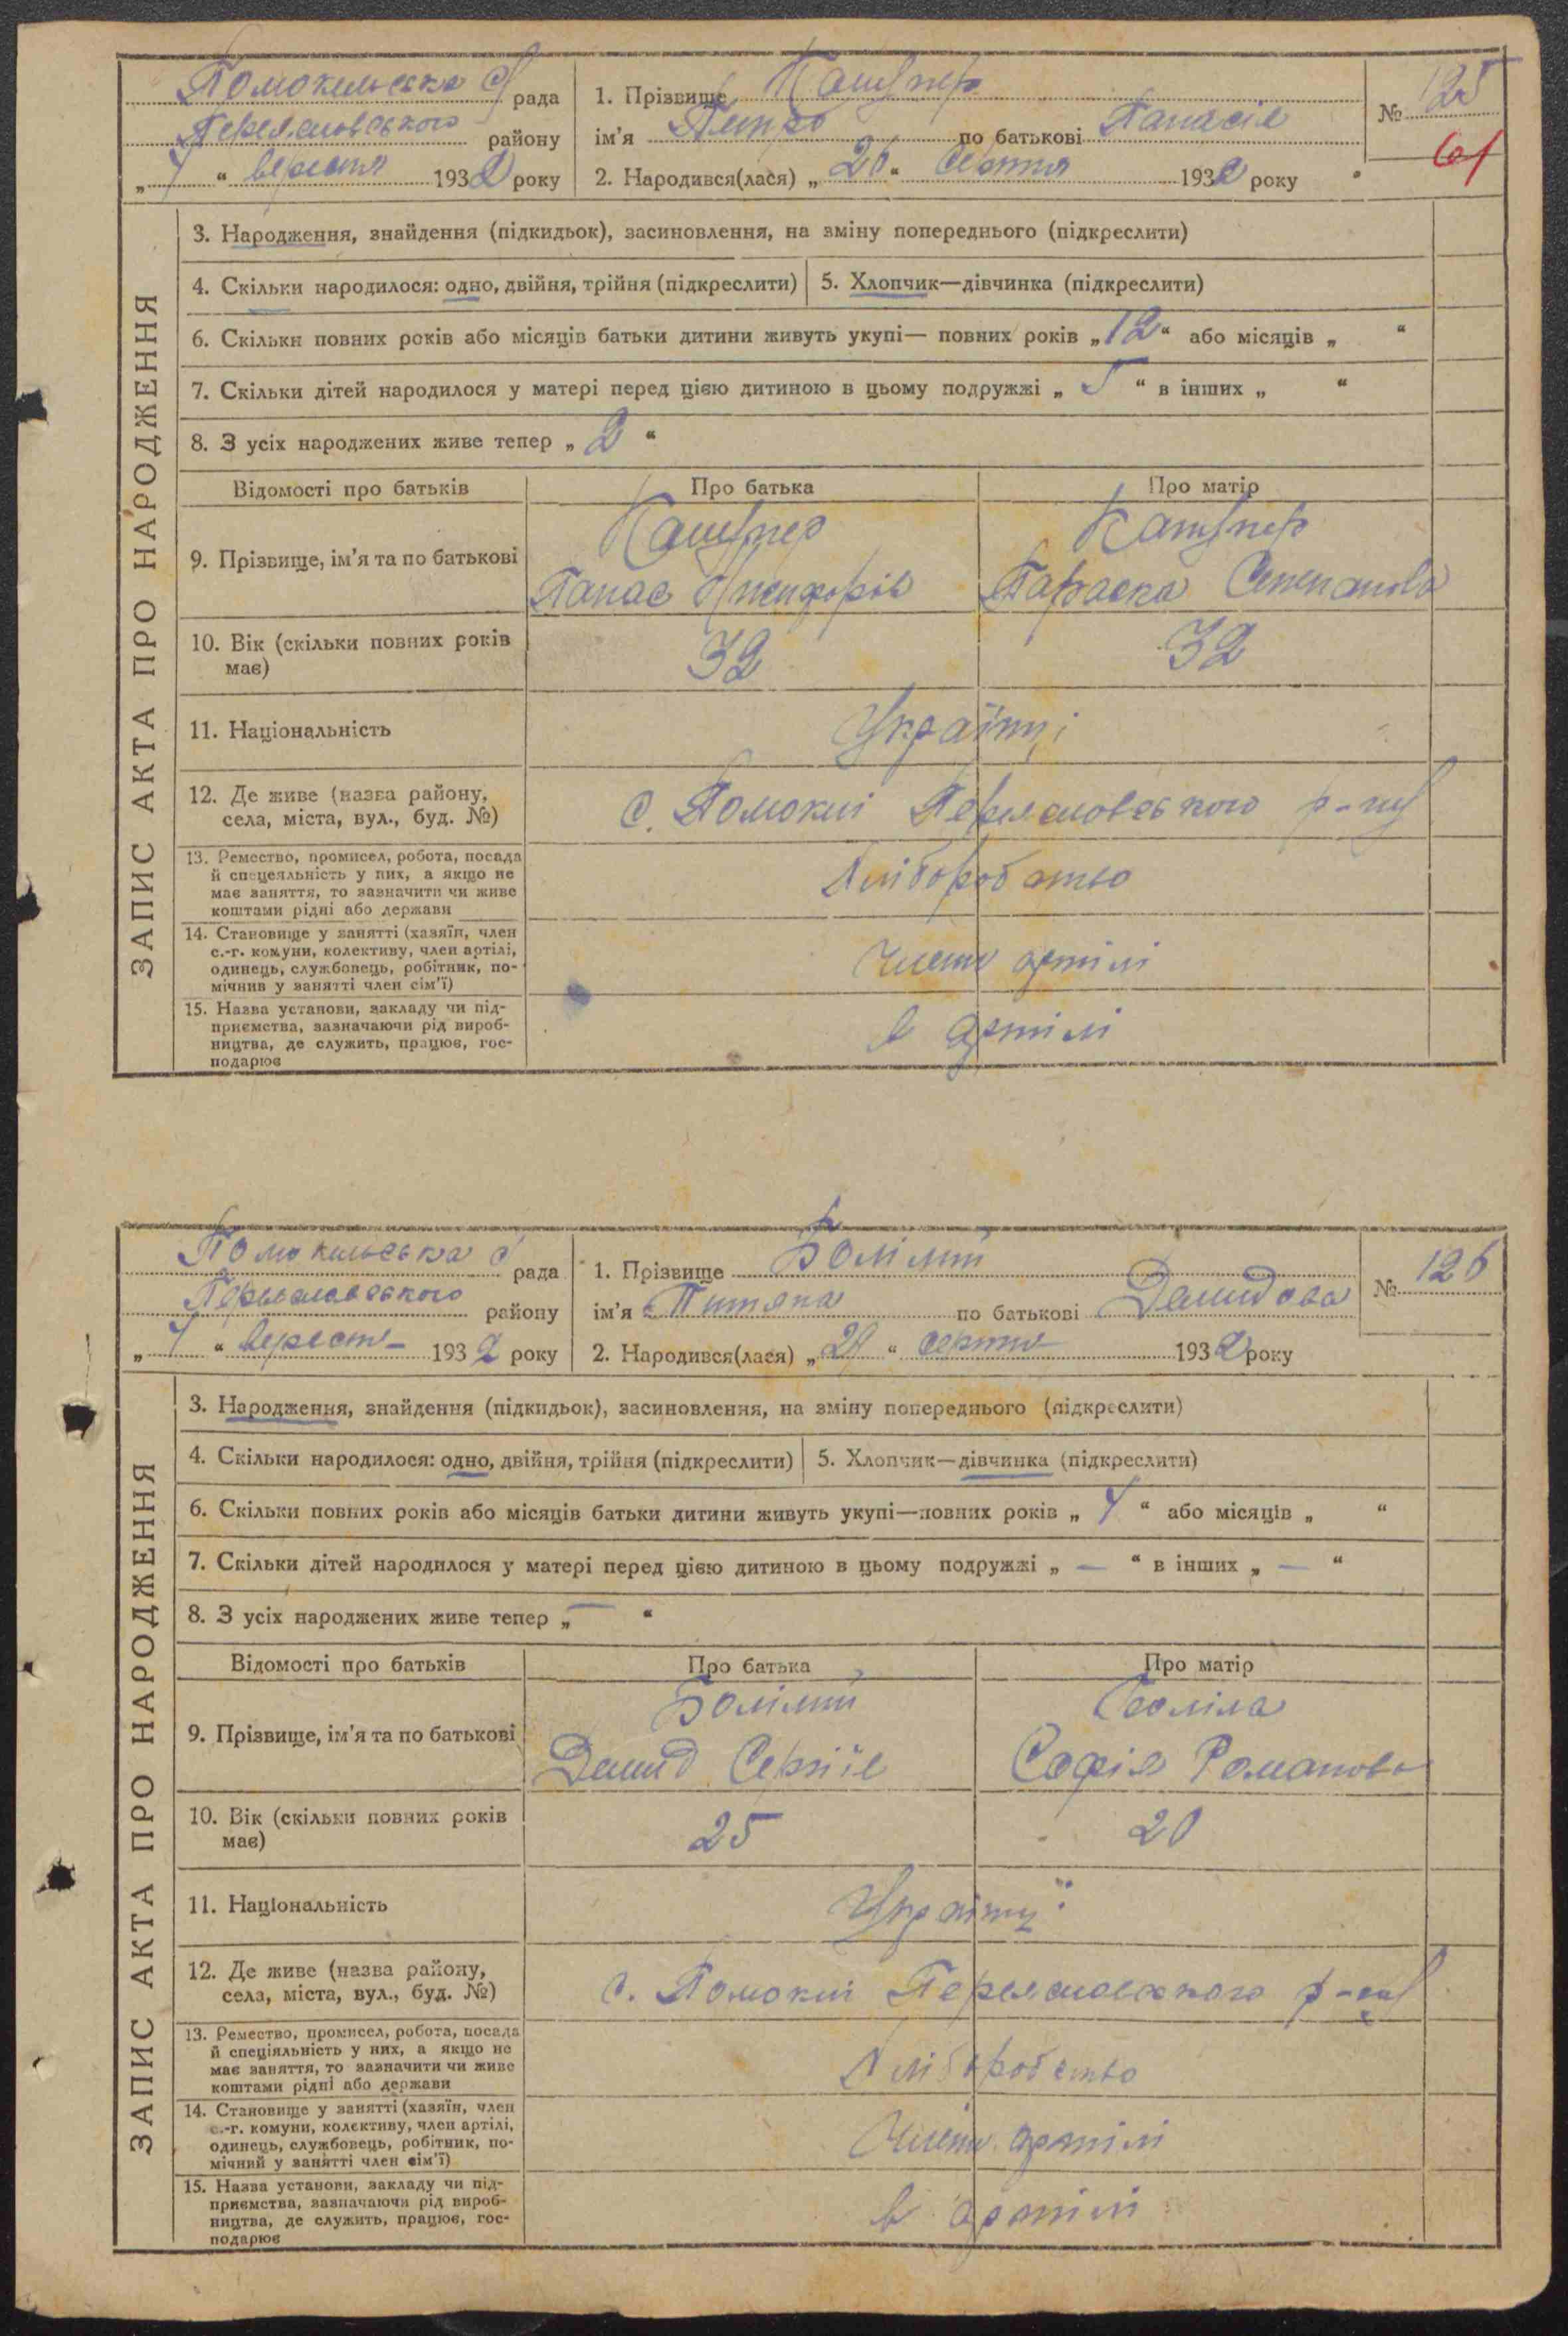 Помокельська с/рада
Переяславського району
„7“ вересня 1932 року
1. Прізвище Кашупер
ім'я Петро по батькові Панасів
2. Народився(лася) „26“ серпня 1932 року
№ 125
61
ЗАПИС АКТА ПРО НАРОДЖЕННЯ
3. Народження, знайдення (підкидьок), засиновлення, на зміну попереднього (підкреслити)
4. Скільки народилося: одно, двійня, трійня (підкреслити)
5. Хлопчик—дівчинка (підкреслити)
6. Скільки повних років або місяців батьки дитини живуть укупі— повних років „12“ або місяців „ “
7. Скільки дітей народилося у матері перед цією дитиною в цьому подружжі „5“ в інших „ “
8. З усіх народжених живе тепер „2“
Відомості про батьків
Про батька
Про матір
9. Прізвище, ім'я та по батькові
Кашупер
Панас
Кашупер
Параска Степанова
10. Вік (скільки повних років
має)
32
32
11. Національність
Українці
12. Де живе (назва району,
села, міста, вул., буд. №)
с. Помоклі Переяславського р-ну
13. Ремество, промисел, робота, посада
й спецеяльність у них, а якщо не
має заняття, то зазначити чи живе
коштами рідні або держави
Хліборобство
14. Становище у занятті (хазяїн, член
с.-г. комуни, колективу, член артілі,
одинець, службовець, робітник, по-
мічнив у занятті член сім'ї)
Члени артілі
15. Назва установи, закладу чи під-
приємства, зазначаючи рід вироб-
ництва, де служить, працює, гос-
подарює
в артілі
Помокельська с рада
Переяславського району
„7“ вересня 1932 року
1. Прізвище
ім'я по батькові Демидова
2. Народився(лася) „29“ серпня 1932 року
№ 126
ЗАПИС АКТА ПРО НАРОДЖЕННЯ
3. Народження, знайдення (підкидьок), засиновлення, на зміну попереднього (підкреслити)
4. Скільки народилося: одно, двійня, трійня (підкреслити)
5. Хлопчик—дівчинка (підкреслити)
6. Скільки повних років або місяців батьки дитини живуть укупі—повних років „ “ або місяців „ “
7. Скільки дітей народилося у матері перед цією дитиною в цьому подружжі „—“ в інших „—“
8. З усіх народжених живе тепер „—“
Відомості про батьків
Про батька
Про матір
9. Прізвище, ім'я та по батькові
Демид Сергіїв
Софія Романова
10. Вік (скільки повних років
має)
25
20
11. Національність
Українці
12. Де живе (назва району,
села, міста, вул., буд. №)
с. Помоклі Переяславського р-ну
13. Ремество, промисел, робота, посада
й спеціяльність у них, а якщо не
має заняття, то зазначити чи живе
коштами рідні або держави
Хліборобство
14. Становище у занятті (хазяїн, член
с.-г. комуни, колективу, член артілі,
одинець, службовець, робітник, по-
мічний у занятті член сім'ї)
Члени артілі
15. Назва установи, закладу чи під-
приємства, зазначаючи рід вироб-
ництва, де служить, працює, гос-
подарює
в артілі